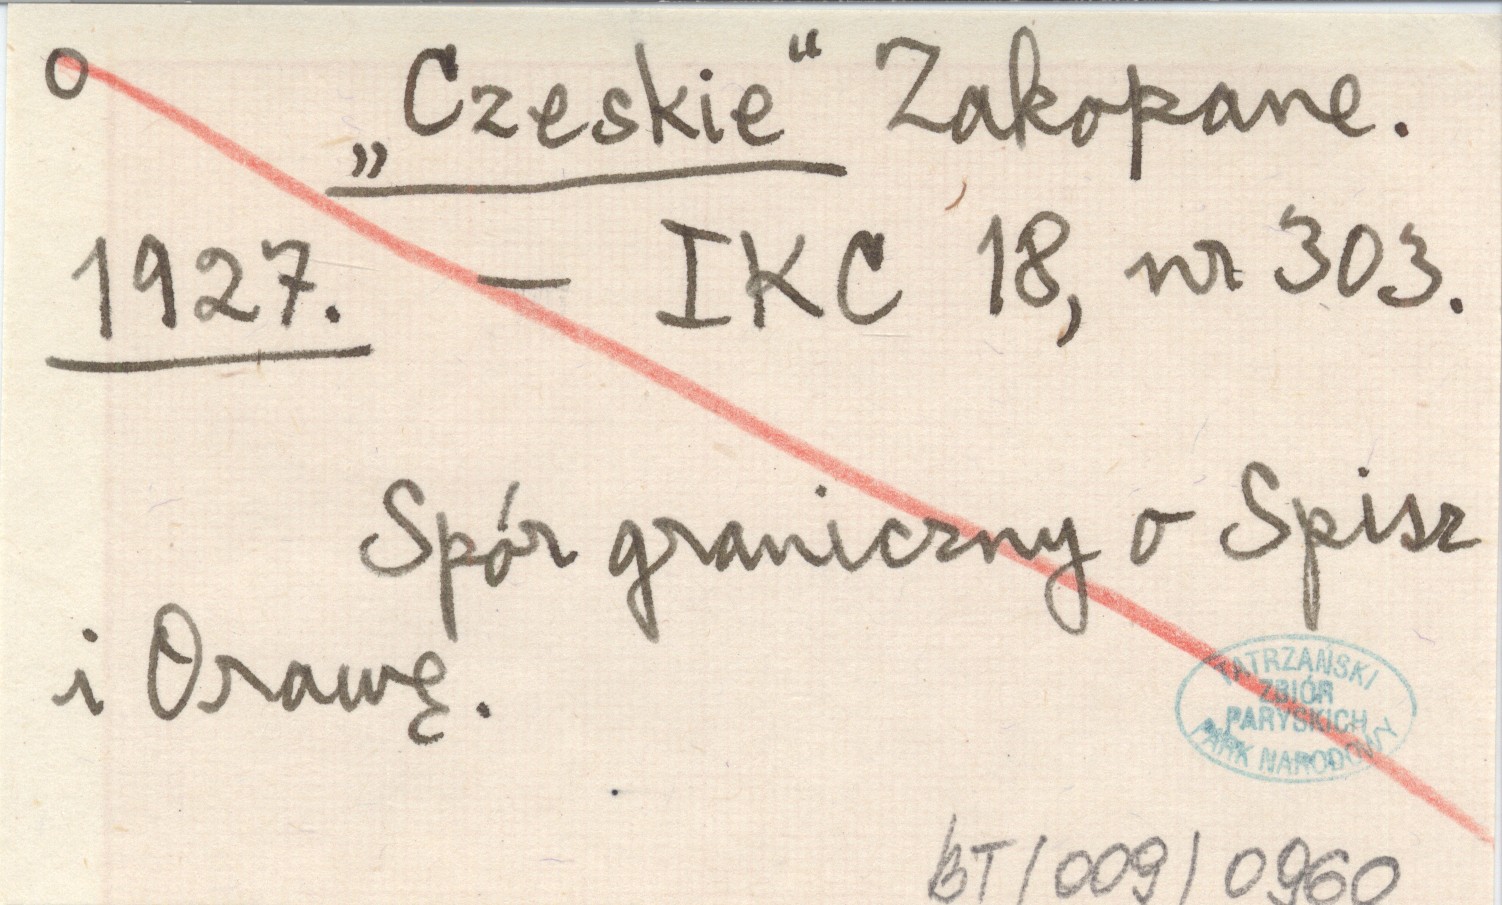 O
„Czeskie“ Zakopane.
1927. — IKC 18, nr 303.
Spór graniczny o Spisz
i Orawę.
TATRZAŃSKI
ZBIÓR
PARYSKICH
PARK NARODOWY
BT/009/0960